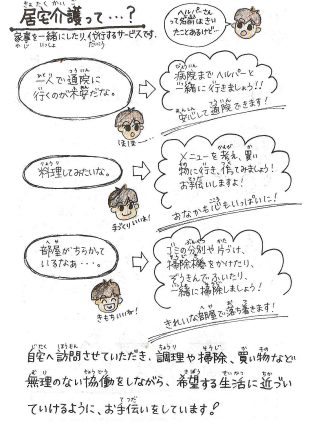 居宅介護って…?
きょたくかいご
家事を一緒にしたり、代行するサービスです。
かじ いっしょ だいこう
ヘルパーさん
って名前はきい
たことあるけど…
一人で通院に
行くのが不安だな。
ほほー…
病院までヘルパーと
一緒に行きましょう!!
安心して通院できます!
料理してみたいな。
手づくりいいね!
メニューを考え、買い
物に行き、作ってみましょう!
お手伝いしますよ!
おなかも心もいっぱいに!
部屋がちらかって
いるなぁ…。
きもちいいね!
ゴミの分別や片づけ、
掃除機をかけたり、
ぞうきんでふいたり、
一緒に掃除しましょう!
きれいな部屋で落ち着きます!
自宅へ訪問させていただき、調理や掃除、買い物など
無理のない協働をしながら、希望する生活に近づい
ていけるように、お手伝いをしています!